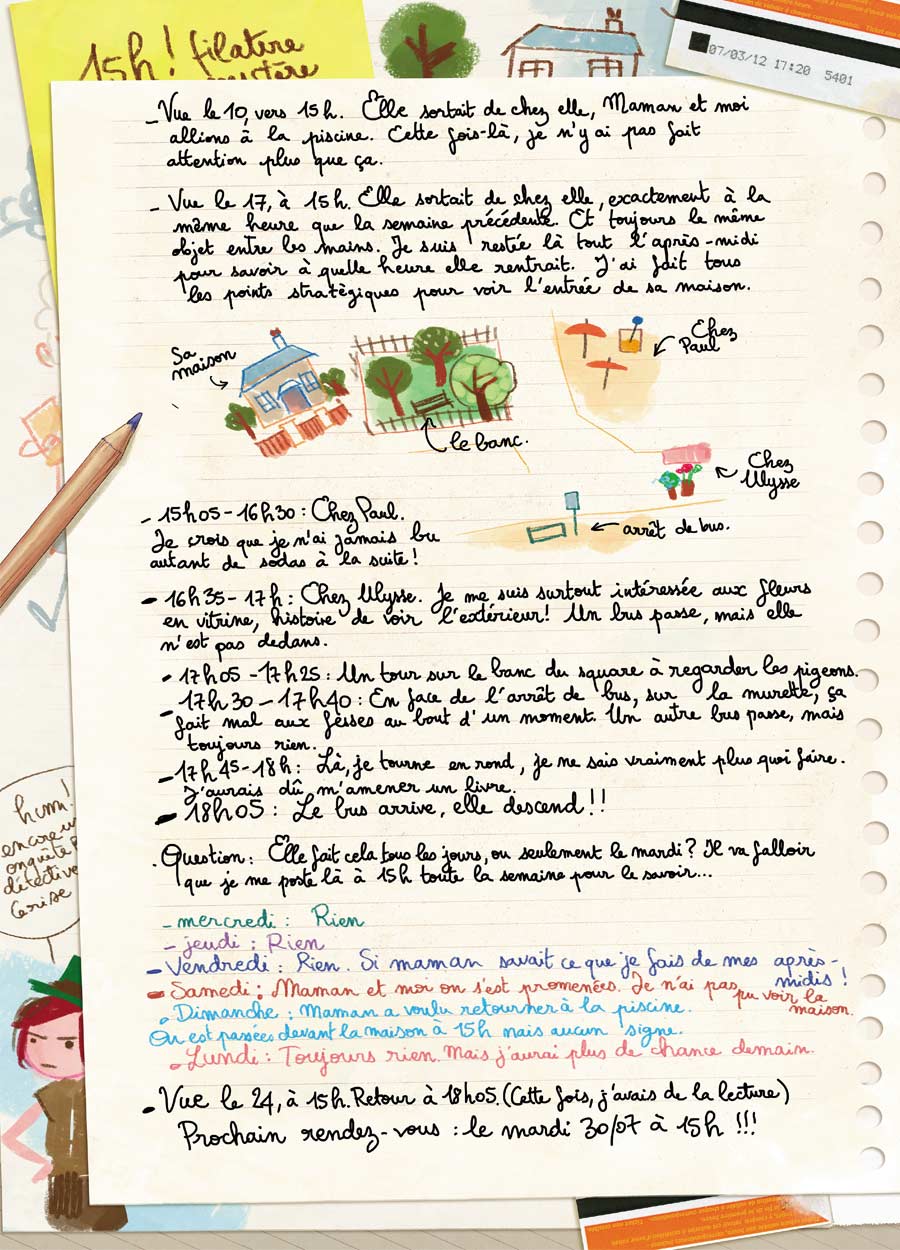 15h! filature
mystère
07/03/12 17:20 5401
- Vue le 10, vers 15h. Elle sortait de chez elle, Maman et moi
allions à la piscine. Cette fois-là, je n'y ai pas fait
attention plus que ça.
- Vue le 17, à 15h. Elle sortait de chez elle, exactement à la
même heure que la semaine précédente. Et toujours le même
objet entre les mains. Je suis restée là tout l'après-midi
pour savoir à quelle heure elle rentrait. J'ai fait tous
les points stratégiques pour voir l'entrée de sa maison.
Sa
maison
Chez
Paul
le banc.
Chez
Ulysse
arrêt de bus.
- 15h05 - 16h30 : Chez Paul.
Je crois que je n'ai jamais bu
autant de sodas à la suite !
- 16h35 - 17h : Chez Ulysse. Je me suis surtout intéressée aux fleurs
en vitrine, histoire de voir l'extérieur ! Un bus passe, mais elle
n'est pas dedans.
- 17h05 - 17h25 : Un tour sur le banc du square à regarder les pigeons.
- 17h30 - 17h40 : En face de l'arrêt de bus, sur la murette, ça
fait mal aux fesses au bout d'un moment. Un autre bus passe, mais
toujours rien.
- 17h45 - 18h : Là, je tourne en rond, je ne sais vraiment plus quoi faire.
J'aurais dû m'amener un livre.
- 18h05 : Le bus arrive, elle descend !!
. Question : Elle fait cela tous les jours, ou seulement le mardi ? Il va falloir
que je me poste là à 15h toute la semaine pour le savoir...
- mercredi : Rien
- jeudi : Rien
- Vendredi : Rien. Si maman savait ce que je fais de mes après-
midis !
- Samedi : Maman et moi on s'est promenées. Je n'ai pas pu voir la
maison.
- Dimanche : Maman a voulu retourner à la piscine.
On est passées devant la maison à 15h mais aucun signe.
- Lundi : Toujours rien. Mais j'aurai plus de chance demain.
- Vue le 24, à 15h. Retour à 18h05. (Cette fois, j'avais de la lecture)
Prochain rendez-vous : le mardi 30/07 à 15h !!!
hum!
encore u
enquête
détective
Cerise